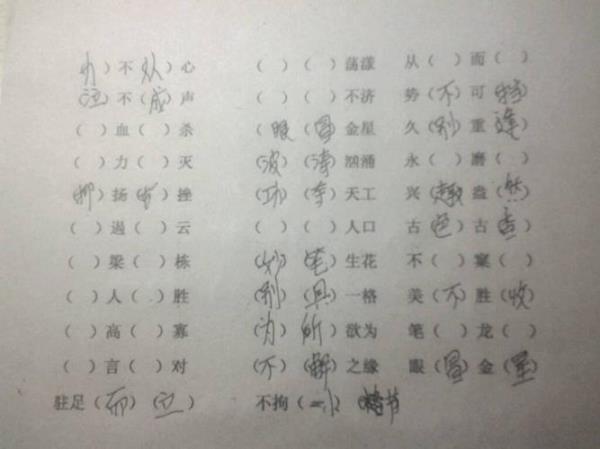 力）不（从）心 （ ）（ ）荡漾 从（ ）而（ ）
泣）不（成）声 （ ）（ ）不济 势（不）可（挡）
（ ）血（ ）杀 （眼（冒）金星 久（别）重（逢）
（ ）力（ ）灭 （波）（涛）汹涌 永（ ）磨（ ）
抑）扬（顿）挫 （巧）（夺）天工 兴（趣）盎（然）
（ ）遏（ ）云 （ ）（ ）人口 古（色）古（香）
（ ）梁（ ）栋 （妙）（笔）生花 不（ ）窠（ ）
（ ）人（ ）胜 （别）（具）一格 美（不）胜（收）
（ ）高（ ）寡 （为）（所）欲为 笔（ ）龙（ ）
（ ）言（ ）对 （不）（解）之缘 眼（冒）金（星）
驻足（而）（立） 不拘（ 小）节